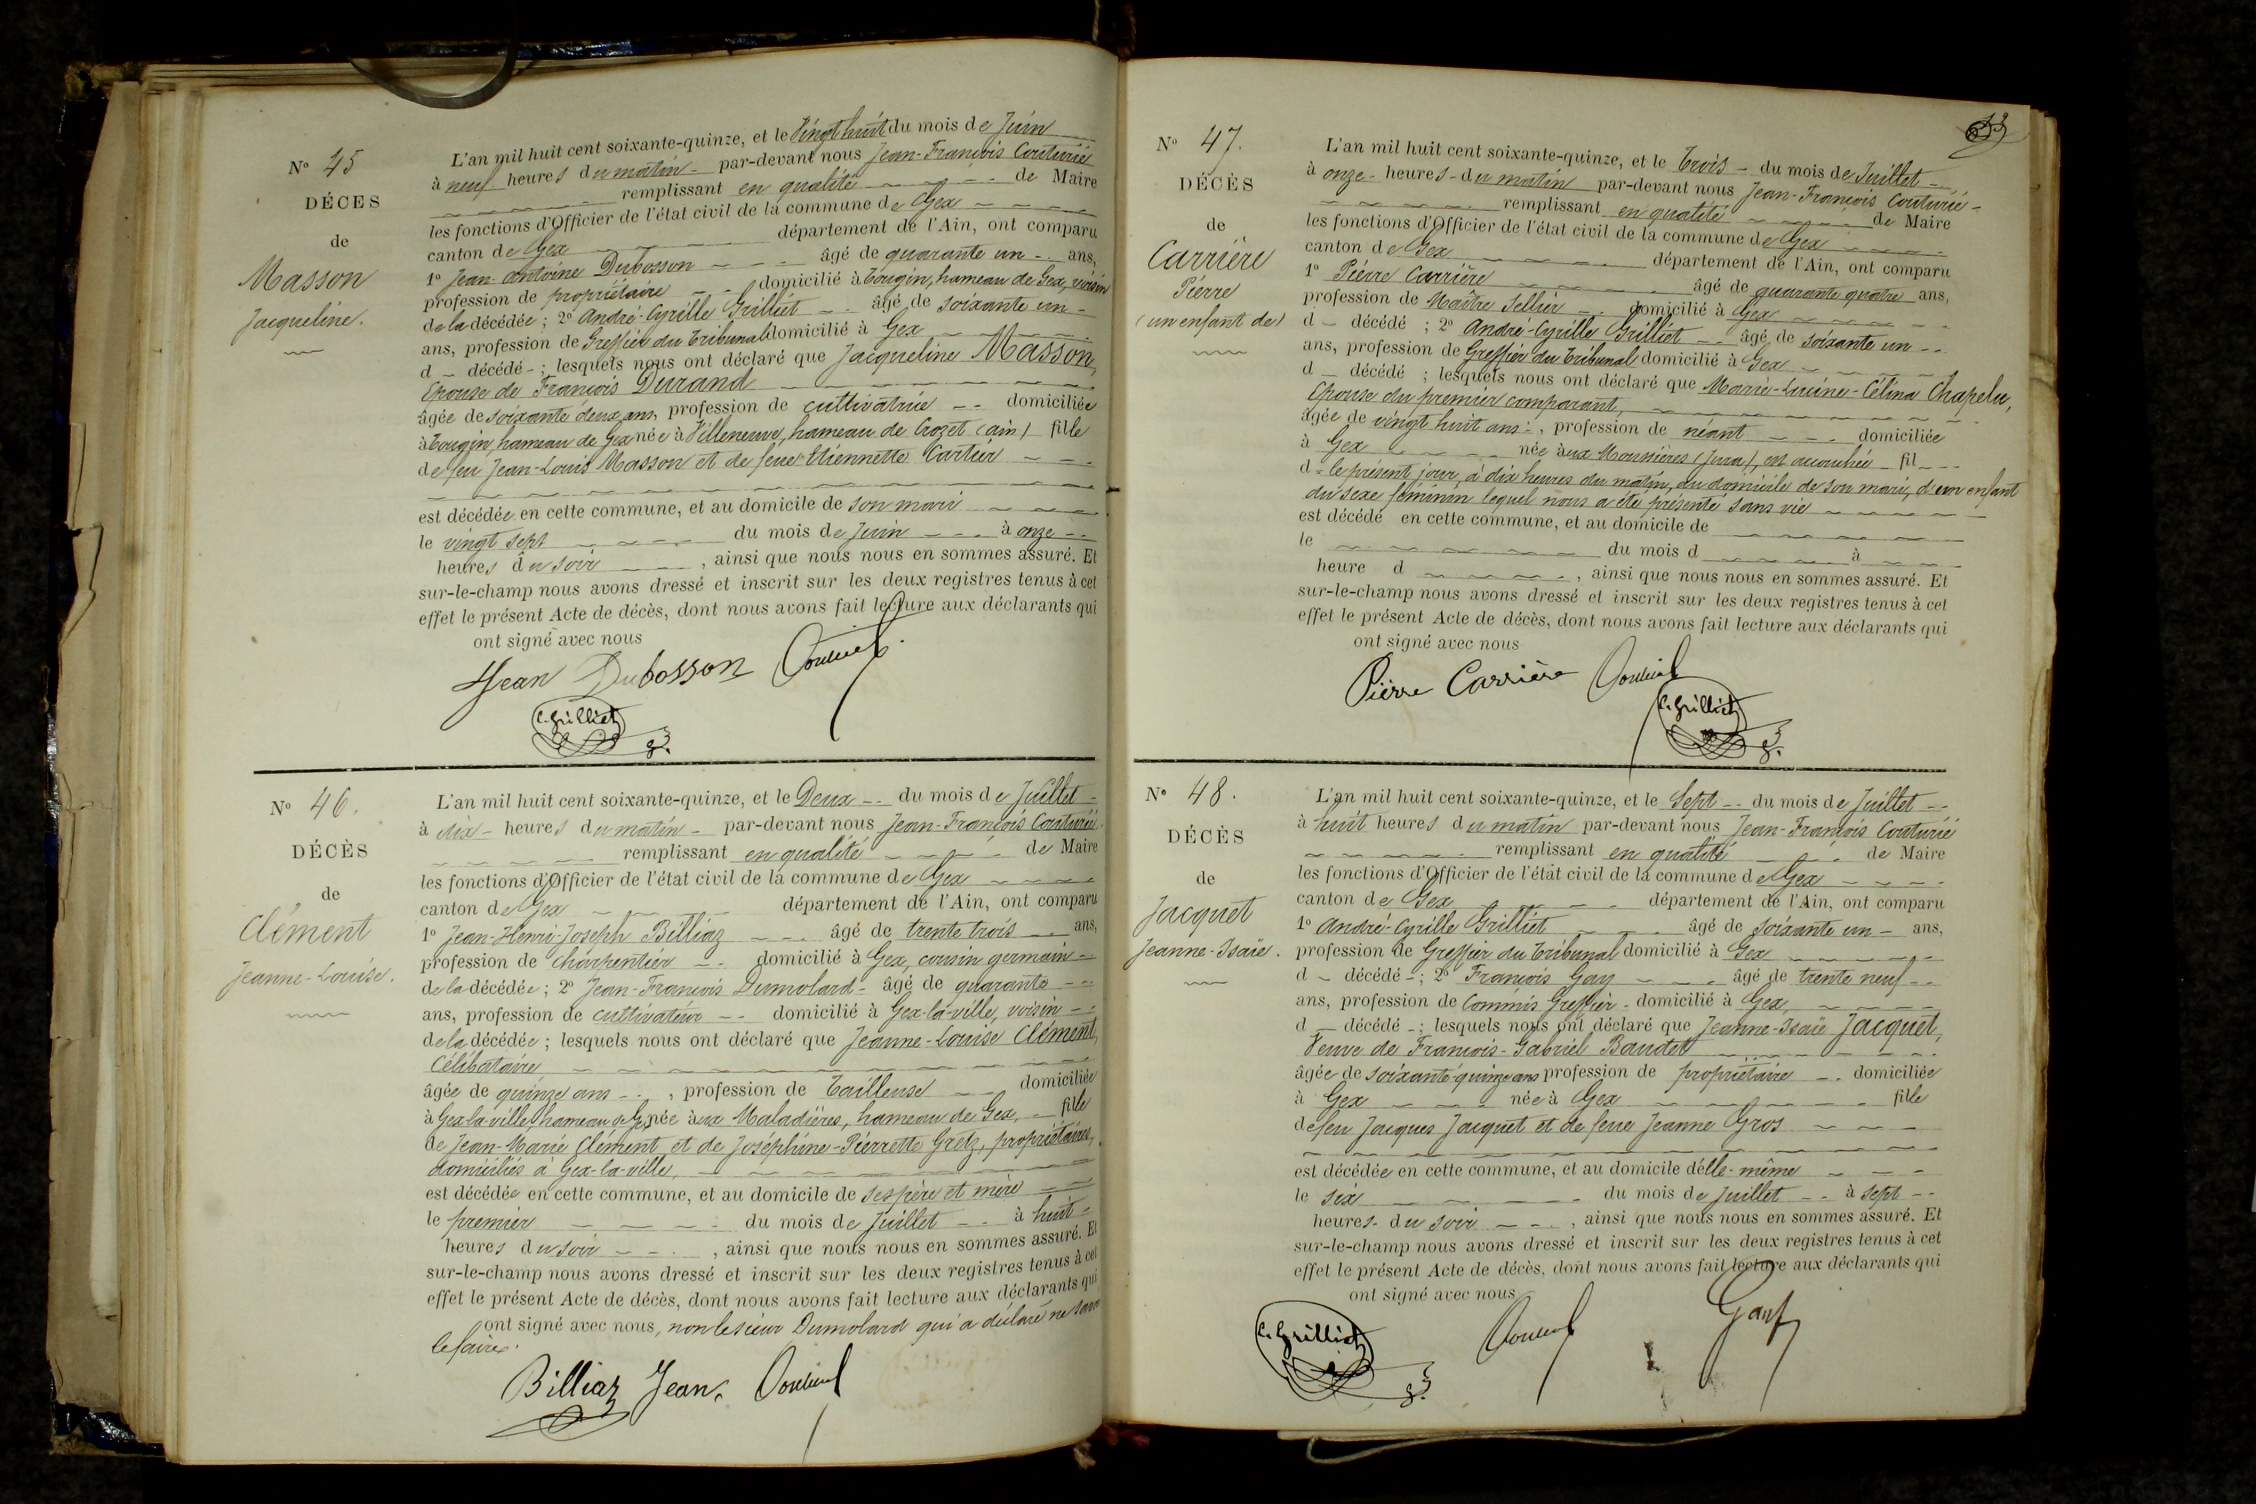 N° 45
DÉCES
de
Masson
Jacqueline.
L'an mil huit cent soixante-quinze, et le Vingt huit du mois de Juin
à neuf heures du matin par-devant nous Jean-François Couturié
remplissant en qualité de Maire
les fonctions d'Officier de l'état civil de la commune de Gex
canton de Gex département de l'Ain, ont comparu
1° Jean-Antoine Dubosson âgé de quarante un ans,
profession de propriétaire domicilié à Tougin, hameau de Gex, voisin
de la décédée ; 2° André-Cyrille Grilliet âgé de soixante un
ans, profession de Greffier du Tribunal domicilié à Gex
d décédé ; lesquels nous ont déclaré que Jacqueline Masson,
Epouse de François Durand
âgée de soixante deux ans, profession de cultivatrice domiciliée
à Tougin, hameau de Gex née à Villeneuve, hameau de Crozet (ain) fille
de feu Jean-Louis Masson et de feue Etiennette Cartier
est décédée en cette commune, et au domicile de son mari
le vingt sept du mois de Juin à onze
heures du soir , ainsi que nous nous en sommes assuré. Et
sur-le-champ nous avons dressé et inscrit sur les deux registres tenus à cet
effet le présent Acte de décès, dont nous avons fait lecture aux déclarants qui
ont signé avec nous
Jean Dubosson Couturié
C. Grilliet
N° 46.
DÉCÈS
de
Clément
Jeanne-Louise.
L'an mil huit cent soixante-quinze, et le Deux du mois de Juillet
à dix heures du matin par-devant nous Jean-François Couturié
remplissant en qualité de Maire
les fonctions d'Officier de l'état civil de la commune de Gex
canton de Gex département de l'Ain, ont comparu
1° Jean-Henri-Joseph Billiaz âgé de trente trois ans,
profession de charpentier domicilié à Gex, cousin germain
de la décédée ; 2° Jean-François Dumolard âgé de quarante
ans, profession de cultivateur domicilié à Gex-la-ville, voisin
de la décédée ; lesquels nous ont déclaré que Jeanne-Louise Clément,
Célibataire
âgée de quinze ans , profession de Tailleuse domiciliée
à Gex-la-ville, hameau de Gex, née aux Maladières, hameau de Gex, fille
de Jean-Marie Clément et de Joséphine-Pierrette Gretz, propriétaires,
domiciliés à Gex-la-ville,
est décédée en cette commune, et au domicile de ses père et mère
le premier du mois de Juillet à huit
heures du soir , ainsi que nous nous en sommes assuré. Et
sur-le-champ nous avons dressé et inscrit sur les deux registres tenus à cet
effet le présent Acte de décès, dont nous avons fait lecture aux déclarants qui
ont signé avec nous, non le sieur Dumolard qui a déclaré ne savoir
le faire.
Billiaz Jean Couturié
N° 47.
DÉCÈS
de
Carrière
Pierre
(un enfant de)
L'an mil huit cent soixante-quinze, et le Trois du mois de Juillet
à onze heures du matin par-devant nous Jean-François Couturié
remplissant en qualité de Maire
les fonctions d'Officier de l'état civil de la commune de Gex
canton de Gex département de l'Ain, ont comparu
1° Pierre Carrière âgé de quarante quatre ans,
profession de Maître Sellier domicilié à Gex
d décédé ; 2° André-Cyrille Grilliet âgé de soixante un
ans, profession de Greffier du Tribunal domicilié à Gex
d décédé ; lesquels nous ont déclaré que Marie-Lucine-Célina Chapelu,
Epouse du premier comparant,
âgée de vingt huit ans , profession de néant domiciliée
à Gex née aux Moussières (Jura), est accouchée fil
d le présent jour, à dix heures du matin, au domicile de son mari, d'un enfant
du sexe féminin lequel nous a été présenté sans vie
est décédé en cette commune, et au domicile de
le du mois d à
heure d , ainsi que nous nous en sommes assuré. Et
sur-le-champ nous avons dressé et inscrit sur les deux registres tenus à cet
effet le présent Acte de décès, dont nous avons fait lecture aux déclarants qui
ont signé avec nous
Pierre Carrière Couturié
C. Grilliet
N° 48.
DÉCÈS
de
Jacquet
Jeanne-Isaïe.
L'an mil huit cent soixante-quinze, et le Sept du mois de Juillet
à huit heures du matin par-devant nous Jean-François Couturié
remplissant en qualité de Maire
les fonctions d'Officier de l'état civil de la commune de Gex
canton de Gex département de l'Ain, ont comparu
1° André-Cyrille Grilliet âgé de soixante un ans,
profession de Greffier du Tribunal domicilié à Gex
d décédé ; 2° François Gay âgé de trente neuf
ans, profession de Commis Greffier domicilié à Gex,
d décédé ; lesquels nous ont déclaré que Jeanne-Isaïe Jacquet,
Veuve de François-Gabriel Baudet
âgée de soixante-quinze ans profession de propriétaire domiciliée
à Gex née à Gex fille
de feu Jacques Jacquet et de feue Jeanne Gros
est décédée en cette commune, et au domicile d'elle-même
le six du mois de Juillet à sept
heures du soir , ainsi que nous nous en sommes assuré. Et
sur-le-champ nous avons dressé et inscrit sur les deux registres tenus à cet
effet le présent Acte de décès, dont nous avons fait lecture aux déclarants qui
ont signé avec nous
C. Grilliet Couturié Gay